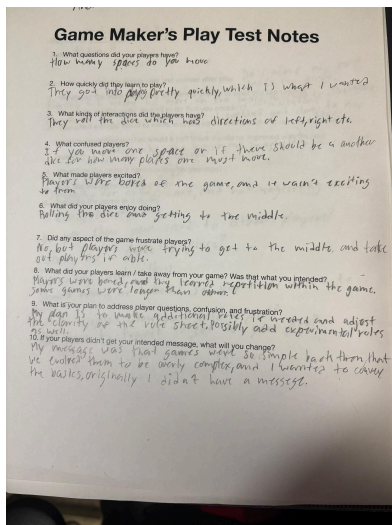 Game Maker's Play Test Notes
1. What questions did your players have?
How many spaces do you move
2. How quickly did they learn to play?
They got into pretty quickly, which is what I wanted
3. What kinds of interactions did the players have?
They roll the dice which has directions of left, right etc.
4. What confused players?
If you move one space or if there should be a another
dice for how many places one must move.
5. What made players excited?
Players were bored of the game, and it wasn't exciting
to them
6. What did your players enjoy doing?
Rolling the dice and getting to the middle.
7. Did any aspect of the game frustrate players?
No, but players were trying to get to the middle and take
out players if able.
8. What did your players learn / take away from your game? Was that what you intended?
Players were bored, and they learned repetition within the game.
Some games were longer than others
9. What is your plan to address player questions, confusion, and frustration?
My plan is to make additional rules if needed and adjust
the clarity of the rule sheet, possibly add experimental rules
as well.
10. If your players didn't get your intended message, what will you change?
My message was that games were so simple back then, that
we evolved them to be overly complex, and I wanted to convey
the basics, originally I didn't have a message.